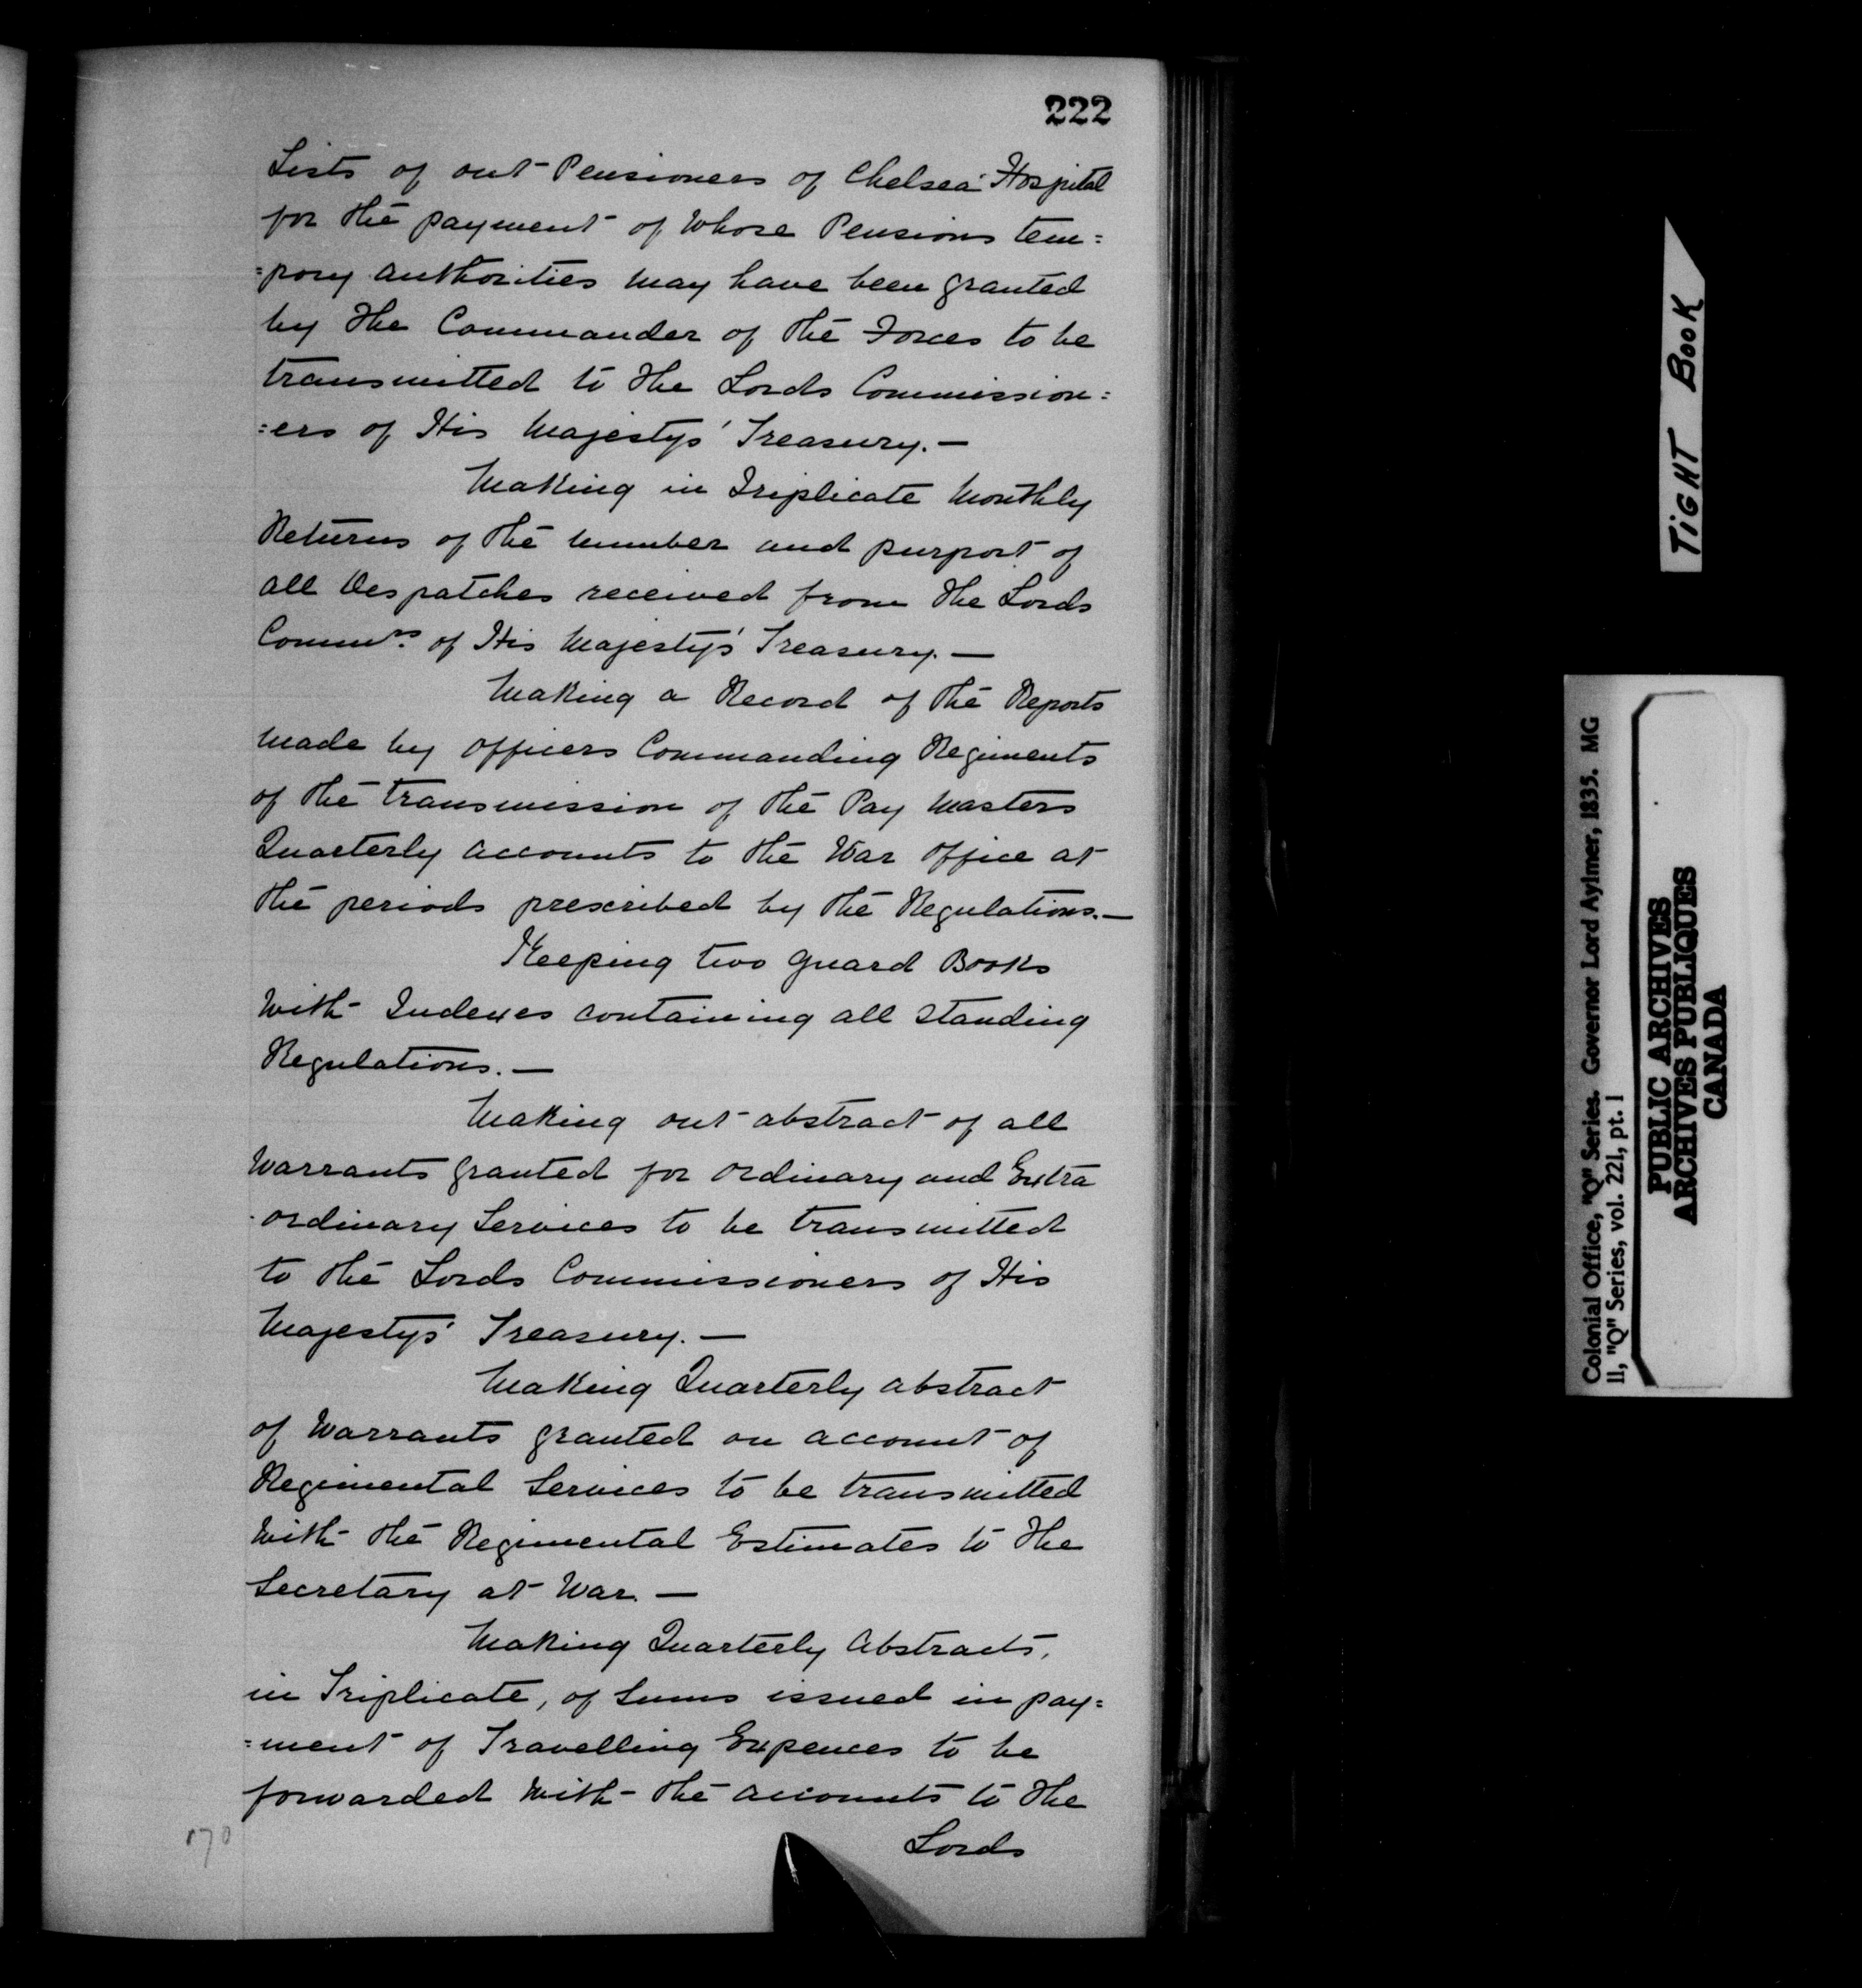 222
Lists of out Pensioners of Chelsea Hospital
for the payment of whose Pensions tem=
=pory authorities may have been granted
by the Commander of the Forces to be
transmitted to the Lords Commission=
=ers of His Majestys' Treasury.—
Making in Triplicate Monthly
Returns of the number and purport of
all Despatches received from the Lords
Commrs. of His Majesty's Treasury.—
Making a Record of the Reports
made by officers Commanding Regiments
of the transmission of the Pay Masters
Quarterly accounts to the War Office at
the periods prescribed by the Regulations.—
Keeping two Guard Books
with Indexes containing all standing
Regulations.—
Making out abstract of all
Warrants granted for ordinary and Extra
-ordinary Services to be transmitted
to the Lords Commissioners of His
Majestys' Treasury.—
Making Quarterly abstract
of Warrants granted on account of
Regimental Services to be transmitted
with the Regimental Estimates to the
Secretary at War.—
Making Quarterly Abstracts,
in Triplicate, of Sums issued in pay=
=ment of Travelling Expences to be
forwarded with the accounts to the
Lords
170
TIGHT BOOK
Colonial Office, "Q" Series. Governor Lord Aylmer, 1835. MG
11, "Q" Series, vol. 221, pt. 1
PUBLIC ARCHIVES
ARCHIVES PUBLIQUES
CANADA